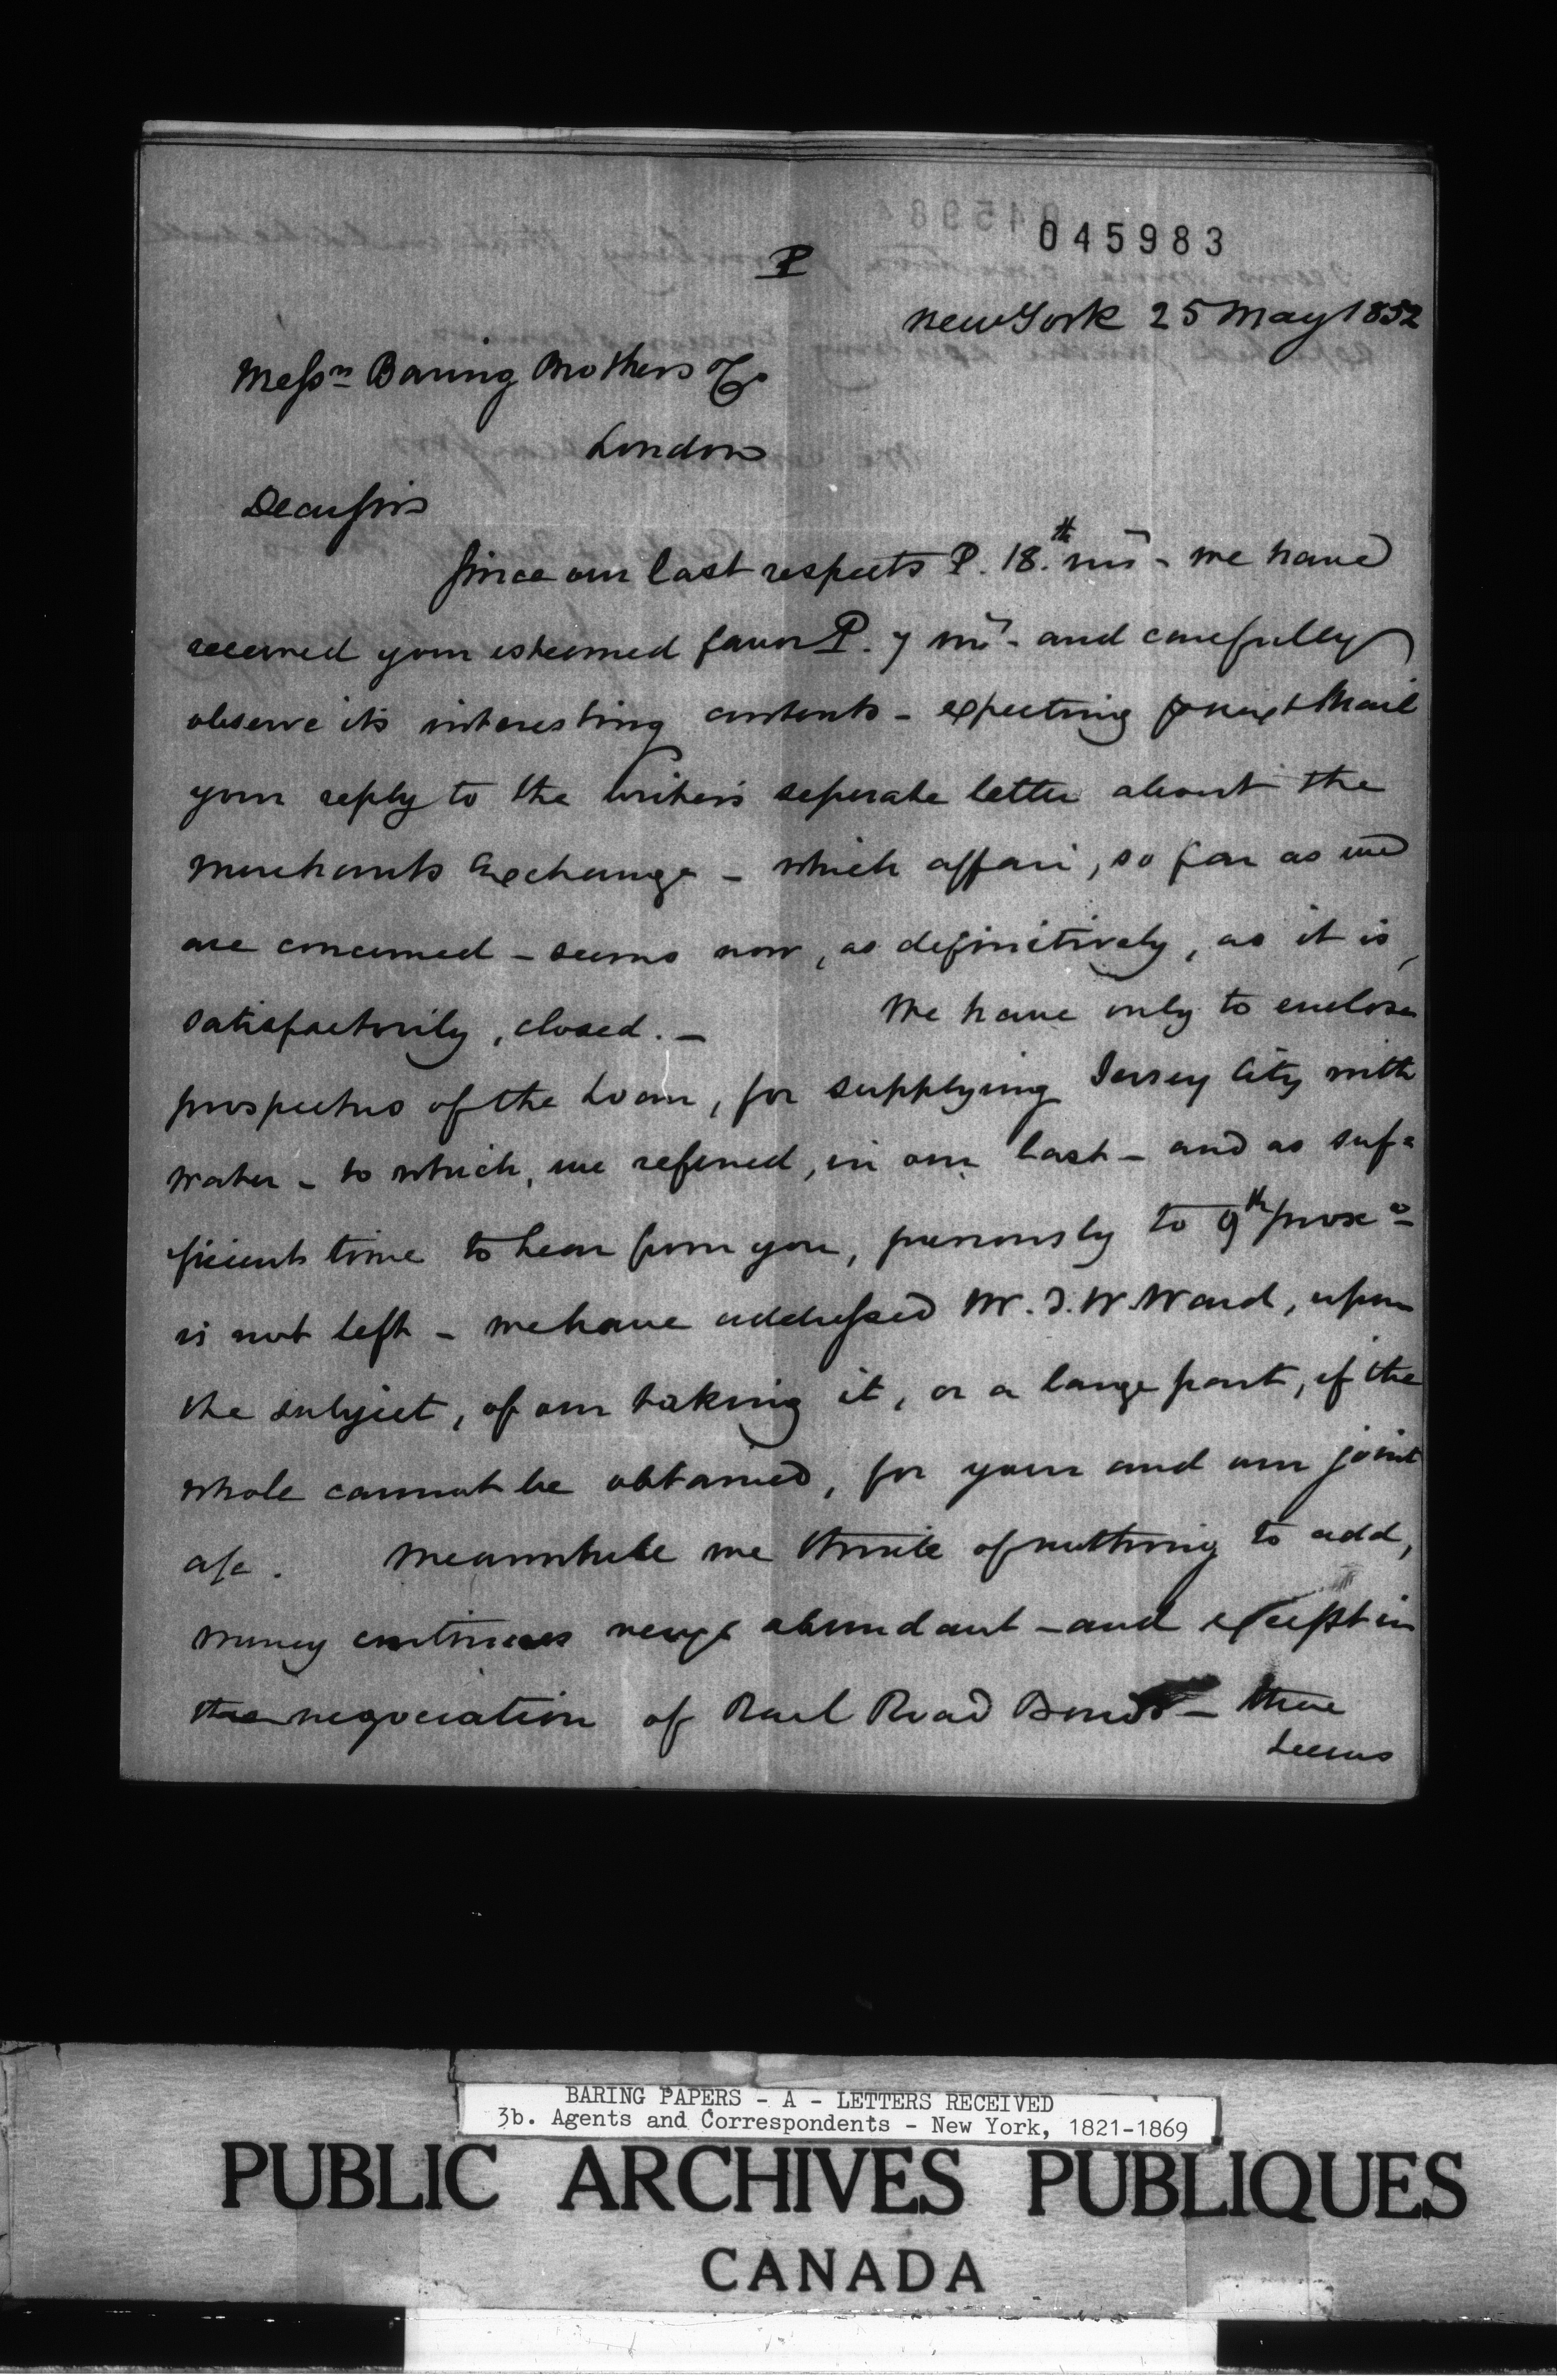 045983
P
New York 25 May 1852
Messrs Baring Brothers & Co
London
Dear Sirs
Since our last respects P. 18.th inst - we have
received your esteemed favor P. 7 inst - and carefully
observe its interesting contents - expecting p next Mail
your reply to the writer's seperate letter about the
Merchants Exchange - which affair, so far as we
are concerned - seems now, as definitively, as it is,
satisfactorily, closed. - We have only to enclose
prospectus of the Loan, for supplying Jersey City with
water - to which, we referred, in our last - and as suf=
ficient time to hear from you, previously to 9th proxo
is not left - we have addressed Mr. T. W. Ward, upon
the subject, of our taking it, or a large part, if the
whole cannot be obtained, for your and our joint
a/c. Meanwhile we think of nothing to add,
money continues very abundant - and except in
the negociation of Rail Road Bonds - there
seems
BARING PAPERS - A - LETTERS RECEIVED
3b. Agents and Correspondents - New York, 1821-1869
PUBLIC ARCHIVES PUBLIQUES
CANADA